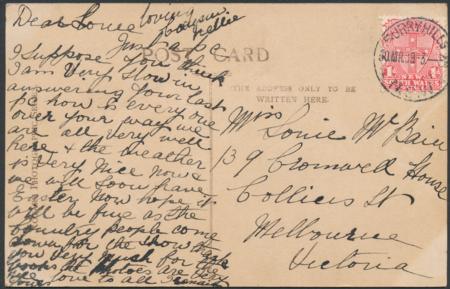 Dear Lonie
loving
Cousin
Nellie
Just a p.c.
I suppose you think
I am very slow in
answering your last
pc how is every one
over your way we
are all very well
here & the weather
is very nice now &
we will soon have
Easter now hope it
will be fine as the
country people come
down for the show
you very much for the
are very
love to all
POST CARD
THE ADDRESS ONLY TO BE
WRITTEN HERE.
Miss
Lonie McBain
139 Cromwell House
Collins St
Melbourne
Victoria
SURRY HILLS
N.S.W